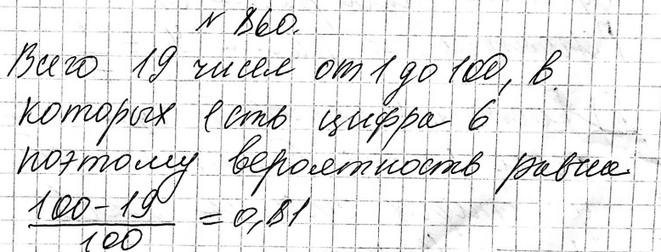 № 860.
Всего 19 чисел от 1 до 100, в
которых есть цифра 6
поэтому вероятность равна
100-19
100
= 0,81